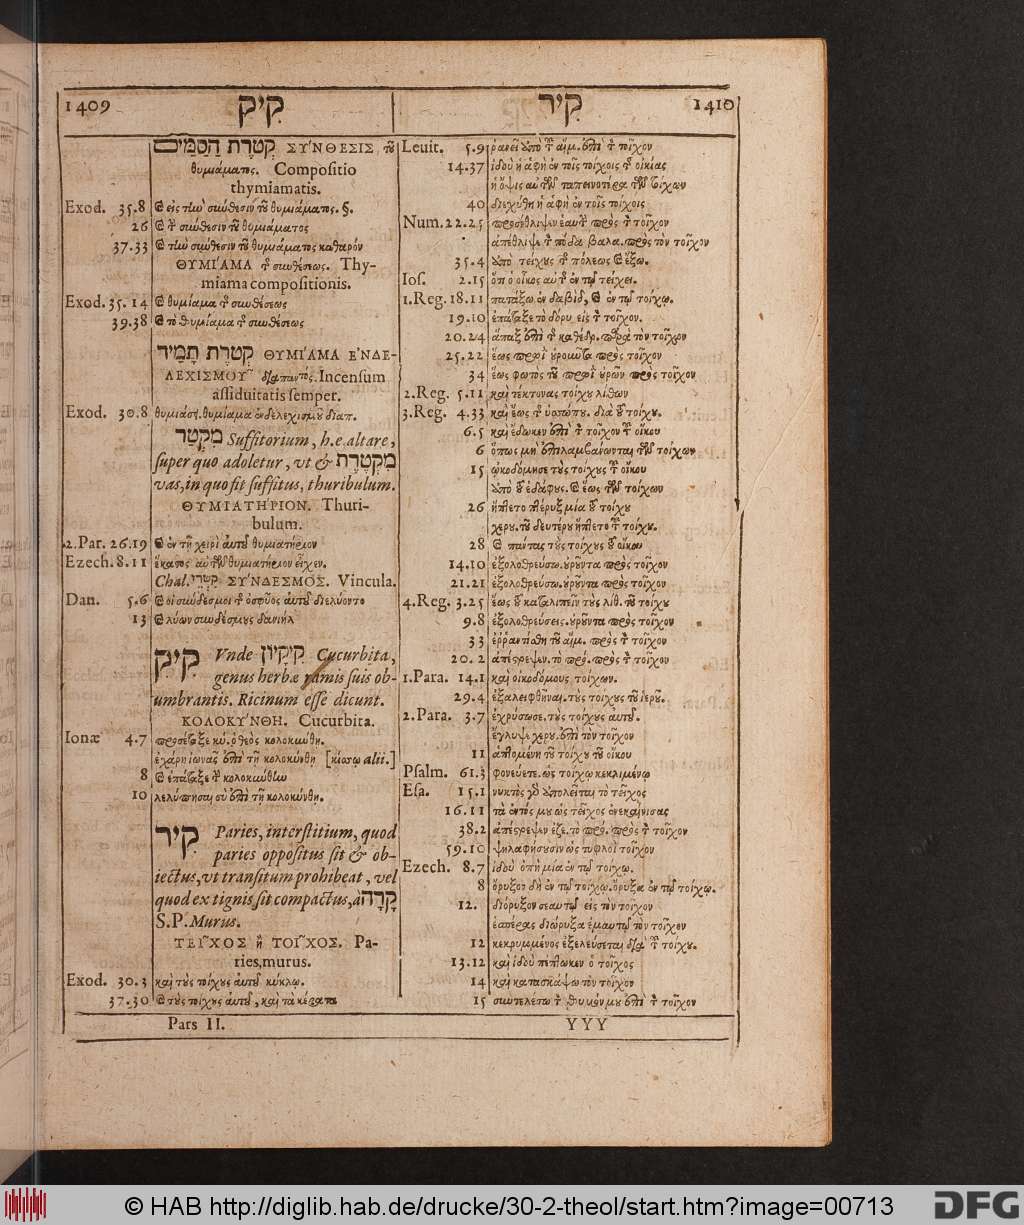 1409 קִיק
קִיר 1410
קְטֹרֶת הַסַּמִּים ΣΎΝΘΕΣΙΣ τοῦ
θυμιάματος. Compositio
thymiamatis.
Exod. 35.8 καὶ εἰς τὴν σύνθεσιν τοῦ θυμιάματος. §.
26 καὶ τ σύνθεσιν τοῦ θυμιάματος
37.33 καὶ τὴν σύνθεσιν τοῦ θυμιάματος καθαρόν
ΘΥΜΙΆΜΑ τῆς συνθέσεως. Thy-
miama compositionis.
Exod. 35.14 καὶ θυμίαμα τῆς συνθέσεως
39.38 καὶ τὸ θυμίαμα τῆς συνθέσεως
קְטֹרֶת תָּמִיד ΘΥΜΙΆΜΑ ἘΝΔΕ-
ΛΕΧΙΣΜΟΥ͂ διαπαντός. Incensum
assiduitatis semper.
Exod. 30.8 θυμιάσει. θυμίαμα ἐνδελεχισμοῦ διαπ.
מִקְטָר Suffitorium, h.e. altare,
super quo adoletur, vt & מִקְטֶרֶת
vas, in quo fit suffitus, thuribulum.
ΘΥΜΙΑΤΉΡΙΟΝ. Thuri-
bulum.
2.Par. 26.19 καὶ ἐν τῇ χειρὶ αὐτοῦ θυμιατήριον
Ezech. 8.11 ἕκαστος αὐτῶν θυμιατήριον εἶχεν.
Chal. קטרי ΣΎΝΔΕΣΜΟΣ. Vincula.
Dan. 5.6 καὶ οἱ σύνδεσμοι τῆς ὀσφύος αὐτοῦ διελύοντο
13 καὶ λύων συνδέσμους δανιήλ
קִיק Vnde קִיקָיוֹן Cucurbita,
genus herbæ ramis suis ob-
umbrantis. Ricinum esse dicunt.
ΚΟΛΟΚΎΝΘΗ. Cucurbita.
Ionæ 4.7 προσέταξε κύ. ὁ θεὸς κολοκύνθῃ.
ἐχάρη ἰωνᾶς ἐπὶ τῇ κολοκύνθῃ [κίσσῳ alii.]
8 καὶ ἐπάταξε τ κολοκύνθην
10 λελύπησαι σὺ ἐπὶ τῇ κολοκύνθῃ.
קִיר Paries, interstitium, quod
paries oppositus sit & ob-
iectus, vt transitum prohibeat, vel
quod ex tignis sit compactus, à קָרָה
S.P. Murus.
ΤΕΙ͂ΧΟΣ ἢ ΤΟΙ͂ΧΟΣ. Pa-
ries, murus.
Exod. 30.3 καὶ τοὺς τοίχους αὐτοῦ κύκλῳ.
37.30 καὶ τοὺς τοίχους αὐτοῦ, καὶ τὰ κέρατα
Pars II.
Leuit. 5.9 ῥανεῖ ἀπὸ τοῦ αἵμ. ἐπὶ τ τοῖχον
14.37 ἰδοὺ ἡ ἁφὴ ἐν τοῖς τοίχοις τῆς οἰκίας
ἡ ὄψις αὐτῶν ταπεινοτέρα τῶν τοίχων
40 διεχύθη ἡ ἁφὴ ἐν τοῖς τοίχοις
Num. 22.25 προσέθλιψεν ἑαυτ πρὸς τ τοῖχον
ἀπέθλιψε τ πόδα βαλα. πρὸς τὸν τοῖχον
35.4 ἀπὸ τείχους τῆς πόλεως καὶ ἔξω.
Ios. 2.15 ὅτι ὁ οἶκος αὐτῆς ἐν τῷ τείχει.
1.Reg. 18.11 πατάξω ἐν δαβὶδ, καὶ ἐν τῷ τοίχῳ.
19.10 ἐπάταξε τὸ δόρυ εἰς τ τοῖχον.
20.24 ἅπαξ ἐπὶ τῆς καθέδρ. παρὰ τὸν τοῖχον
25.22 ἕως πρωῒ οὐροῦντα πρὸς τοῖχον
34 ἕως φωτὸς τοῦ πρωῒ οὐρῶν πρὸς τοῖχον
2.Reg. 5.11 καὶ τέκτονας τοίχου λίθων
3.Reg. 4.33 καὶ ἕως τῆς ὑσσώπου. διὰ τοῦ τοίχου.
6.5 καὶ ἔδωκεν ἐπὶ τ τοῖχον τοῦ οἴκου
6 ὅπως μὴ ἐπιλαμβάνωνται τῶν τοίχων
15 ᾠκοδόμησε τοὺς τοίχους τοῦ οἴκου
ἀπὸ τοῦ ἐδάφους. καὶ ἕως τῶν τοίχων
26 ἥπτετο πτέρυξ μία τοῦ τοίχου
χερου. τοῦ δευτέρου ἥπτετο τοῦ τοίχου.
28 καὶ πάντας τοὺς τοίχους τοῦ οἴκου
14.10 ἐξολοθρεύσω. οὐροῦντα πρὸς τοῖχον
21.21 ἐξολοθρεύσω. οὐροῦντα πρὸς τοῖχον
4.Reg. 3.25 ἕως τοῦ καταλιπεῖν τοὺς λίθ. τοῦ τοίχου
9.8 ἐξολοθρεύσεις. οὐροῦντα πρὸς τοῖχον
33 ἐῤῥαντίσθη τοῦ αἵμ. πρὸς τ τοῖχον
20.2 ἀπέστρεψεν. τὸ πρό. πρὸς τ τοῖχον
1.Para. 14.1 καὶ οἰκοδόμους τοίχων.
29.4 ἐξαλειφθῆναι. τοὺς τοίχους τοῦ ἱεροῦ.
2.Para. 3.7 ἐχρύσωσε. τοὺς τοίχους αὐτοῦ.
ἔγλυψε χερου. ἐπὶ τὸν τοῖχον
11 ἁπτομένη τοῦ τοίχου τοῦ οἴκου
Psalm. 61.3 φονεύετε. ὡς τοίχῳ κεκλιμένῳ
Esa. 15.1 νυκτὸς γὰρ ἀπολεῖται τὸ τεῖχος
16.11 τὰ ἐντός μου ὡς τεῖχος ἀνεκαίνισας
38.2 ἀπέστρεψεν ἐζε. τὸ πρό. πρὸς τ τοῖχον
59.10 ψηλαφήσουσιν ὡς τυφλοὶ τοῖχον
Ezech. 8.7 ἰδοὺ ὀπὴ μία ἐν τῷ τοίχῳ.
8 ὄρυξον δὴ ἐν τῷ τοίχῳ. ὤρυξα ἐν τῷ τοίχῳ.
12. διόρυξον σεαυτῷ εἰς τὸν τοῖχον
ἑσπέρας διώρυξα ἐμαυτῷ τὸν τοῖχον
12 κεκρυμμένος ἐξελεύσεται διὰ τοῦ τοίχου.
13.12 καὶ ἰδοὺ πέπτωκεν ὁ τοῖχος
14 καὶ κατασκάψω τὸν τοῖχον
15 συντελέσω τ θυμόν μου ἐπὶ τ τοῖχον
YYY
© HAB http://diglib.hab.de/drucke/30-2-theol/start.htm?image=00713
DFG